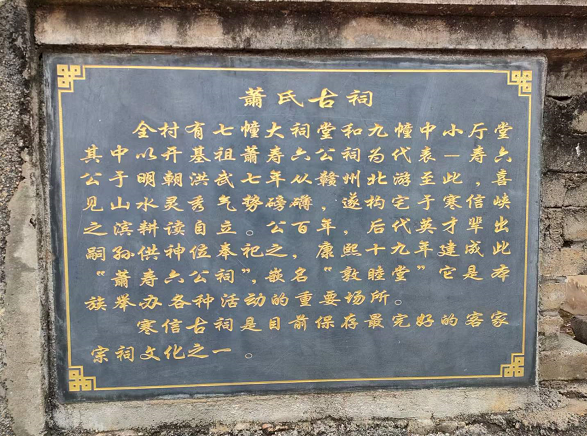 萧氏古祠
全村有七幢大祠堂和九幢中小厅堂
其中以开基祖萧寿六公祠为代表—寿六
公于明朝洪武七年从赣州北游至此，喜
见山水灵秀气势磅礴，遂构宅于寒信峡
之滨耕读自立。公百年，后代英才辈出
嗣孙供神位奉祀之，康熙十九年建成此
“萧寿六公祠”，嵌名“敦睦堂”它是本
族举办各种活动的重要场所。
寒信古祠是目前保存最完好的客家
宗祠文化之一。